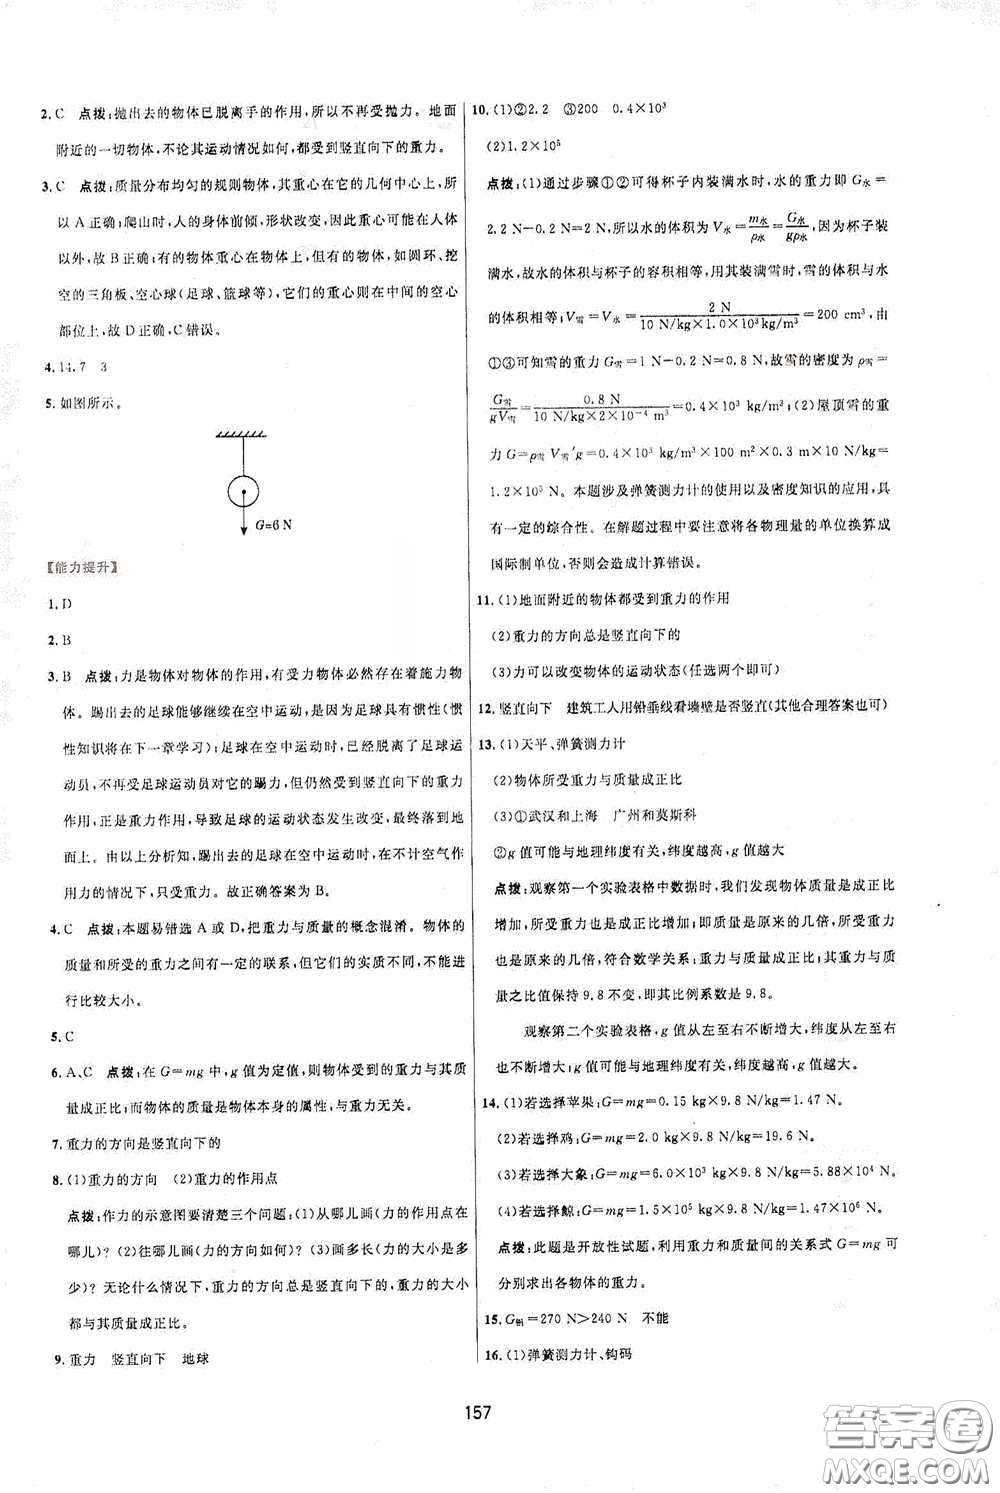 2. C　点拨:抛出去的物体已脱离手的作用，所以不再受抛力。地面
附近的一切物体，不论其运动情况如何，都受到竖直向下的重力。
3. C　点拨:质量分布均匀的规则物体，其重心在它的几何中心上，所
以 A 正确；爬山时，人的身体前倾，形状改变，因此重心可能在人体
以外，故 B 正确；有的物体重心在物体上，但有的物体，如圆环、挖
空的三角板、空心球(足球、篮球等)，它们的重心则在中间的空心
部位上，故 D 正确，C 错误。
4. 14.7　3
5. 如图所示。
G=6 N
【能力提升】
1. D
2. B
3. B　点拨:力是物体对物体的作用，有受力物体必然存在着施力物
体。踢出去的足球能够继续在空中运动，是因为足球具有惯性(惯
性知识将在下一章学习)；足球在空中运动时，已经脱离了足球运
动员，不再受足球运动员对它的踢力，但仍然受到竖直向下的重力
作用，正是重力作用，导致足球的运动状态发生改变，最终落到地
面上。由以上分析知，踢出去的足球在空中运动时，在不计空气作
用力的情况下，只受重力。故正确答案为 B。
4. C　点拨:本题易错选 A 或 D，把重力与质量的概念混淆。物体的
质量和所受的重力之间有一定的联系，但它们的实质不同，不能
进行比较大小。
5. C
6. A、C　点拨:在 G=mg 中，g 值为定值，则物体受到的重力与其质
量成正比；而物体的质量是物体本身的属性，与重力无关。
7. 重力的方向是竖直向下的
8. (1)重力的方向　(2)重力的作用点
点拨:作力的示意图要清楚三个问题:(1)从哪儿画(力的作用点在
哪儿)? (2)往哪儿画(力的方向如何)? (3)画多长(力的大小是多
少)? 无论什么情况下，重力的方向总是竖直向下的，重力的大小
都与其质量成正比。
9. 重力　竖直向下　地球
10. (1)②2.2　③200　0.4×10³
(2)1.2×10⁵
点拨:(1)通过步骤①②可得杯子内装满水时，水的重力即 G水=
2.2 N−0.2 N=2 N，所以水的体积为 V水=m水/ρ水=G水/gρ水，因为杯子装
满水，故水的体积与杯子的容积相等，用其装满雪时，雪的体积与水
的体积相等；V雪=V水=2 N/(10 N/kg×1.0×10³kg/m³)=200 cm³，由
①③可知雪的重力 G雪=1 N−0.2 N=0.8 N，故雪的密度为 ρ雪=
G雪/gV雪=0.8 N/(10 N/kg×2×10⁻⁴ m³)=0.4×10³ kg/m³；(2)屋顶雪的重
力 G=ρ雪 V雪′g=0.4×10³ kg/m³×100 m²×0.3 m×10 N/kg=
1.2×10⁵ N。本题涉及弹簧测力计的使用以及密度知识的应用，具
有一定的综合性。在解题过程中要注意将各物理量的单位换算成
国际制单位，否则会造成计算错误。
11. (1)地面附近的物体都受到重力的作用
(2)重力的方向总是竖直向下的
(3)力可以改变物体的运动状态(任选两个即可)
12. 竖直向下　建筑工人用铅垂线看墙壁是否竖直(其他合理答案也可)
13. (1)天平、弹簧测力计
(2)物体所受重力与质量成正比
(3)①武汉和上海　广州和莫斯科
②g 值可能与地理纬度有关，纬度越高，g 值越大
点拨:观察第一个实验表格中数据时，我们发现物体质量是成正比
增加，所受重力也是成正比增加；即质量是原来的几倍，所受重力
也是原来的几倍，符合数学关系；重力与质量成正比；而重力与质
量之比值保持 9.8 不变，即其比例系数是 9.8。
观察第二个实验表格，g 值从左至右不断增大，纬度从左至右
也不断增大；g 值可能与地理纬度有关，纬度越高，g 值越大。
14. (1)若选择苹果:G=mg=0.15 kg×9.8 N/kg=1.47 N。
(2)若选择鸡:G=mg=2.0 kg×9.8 N/kg=19.6 N。
(3)若选择大象:G=mg=6.0×10³ kg×9.8 N/kg=5.88×10⁴ N。
(4)若选择鲸:G=mg=1.5×10⁵ kg×9.8 N/kg=1.47×10⁶ N。
点拨:此题是开放性试题，利用重力和质量间的关系式 G=mg 可
分别求出各物体的重力。
15. G铜=270 N>240 N　不能
16. (1)弹簧测力计、钩码
157
答案卷
MXQE.COM